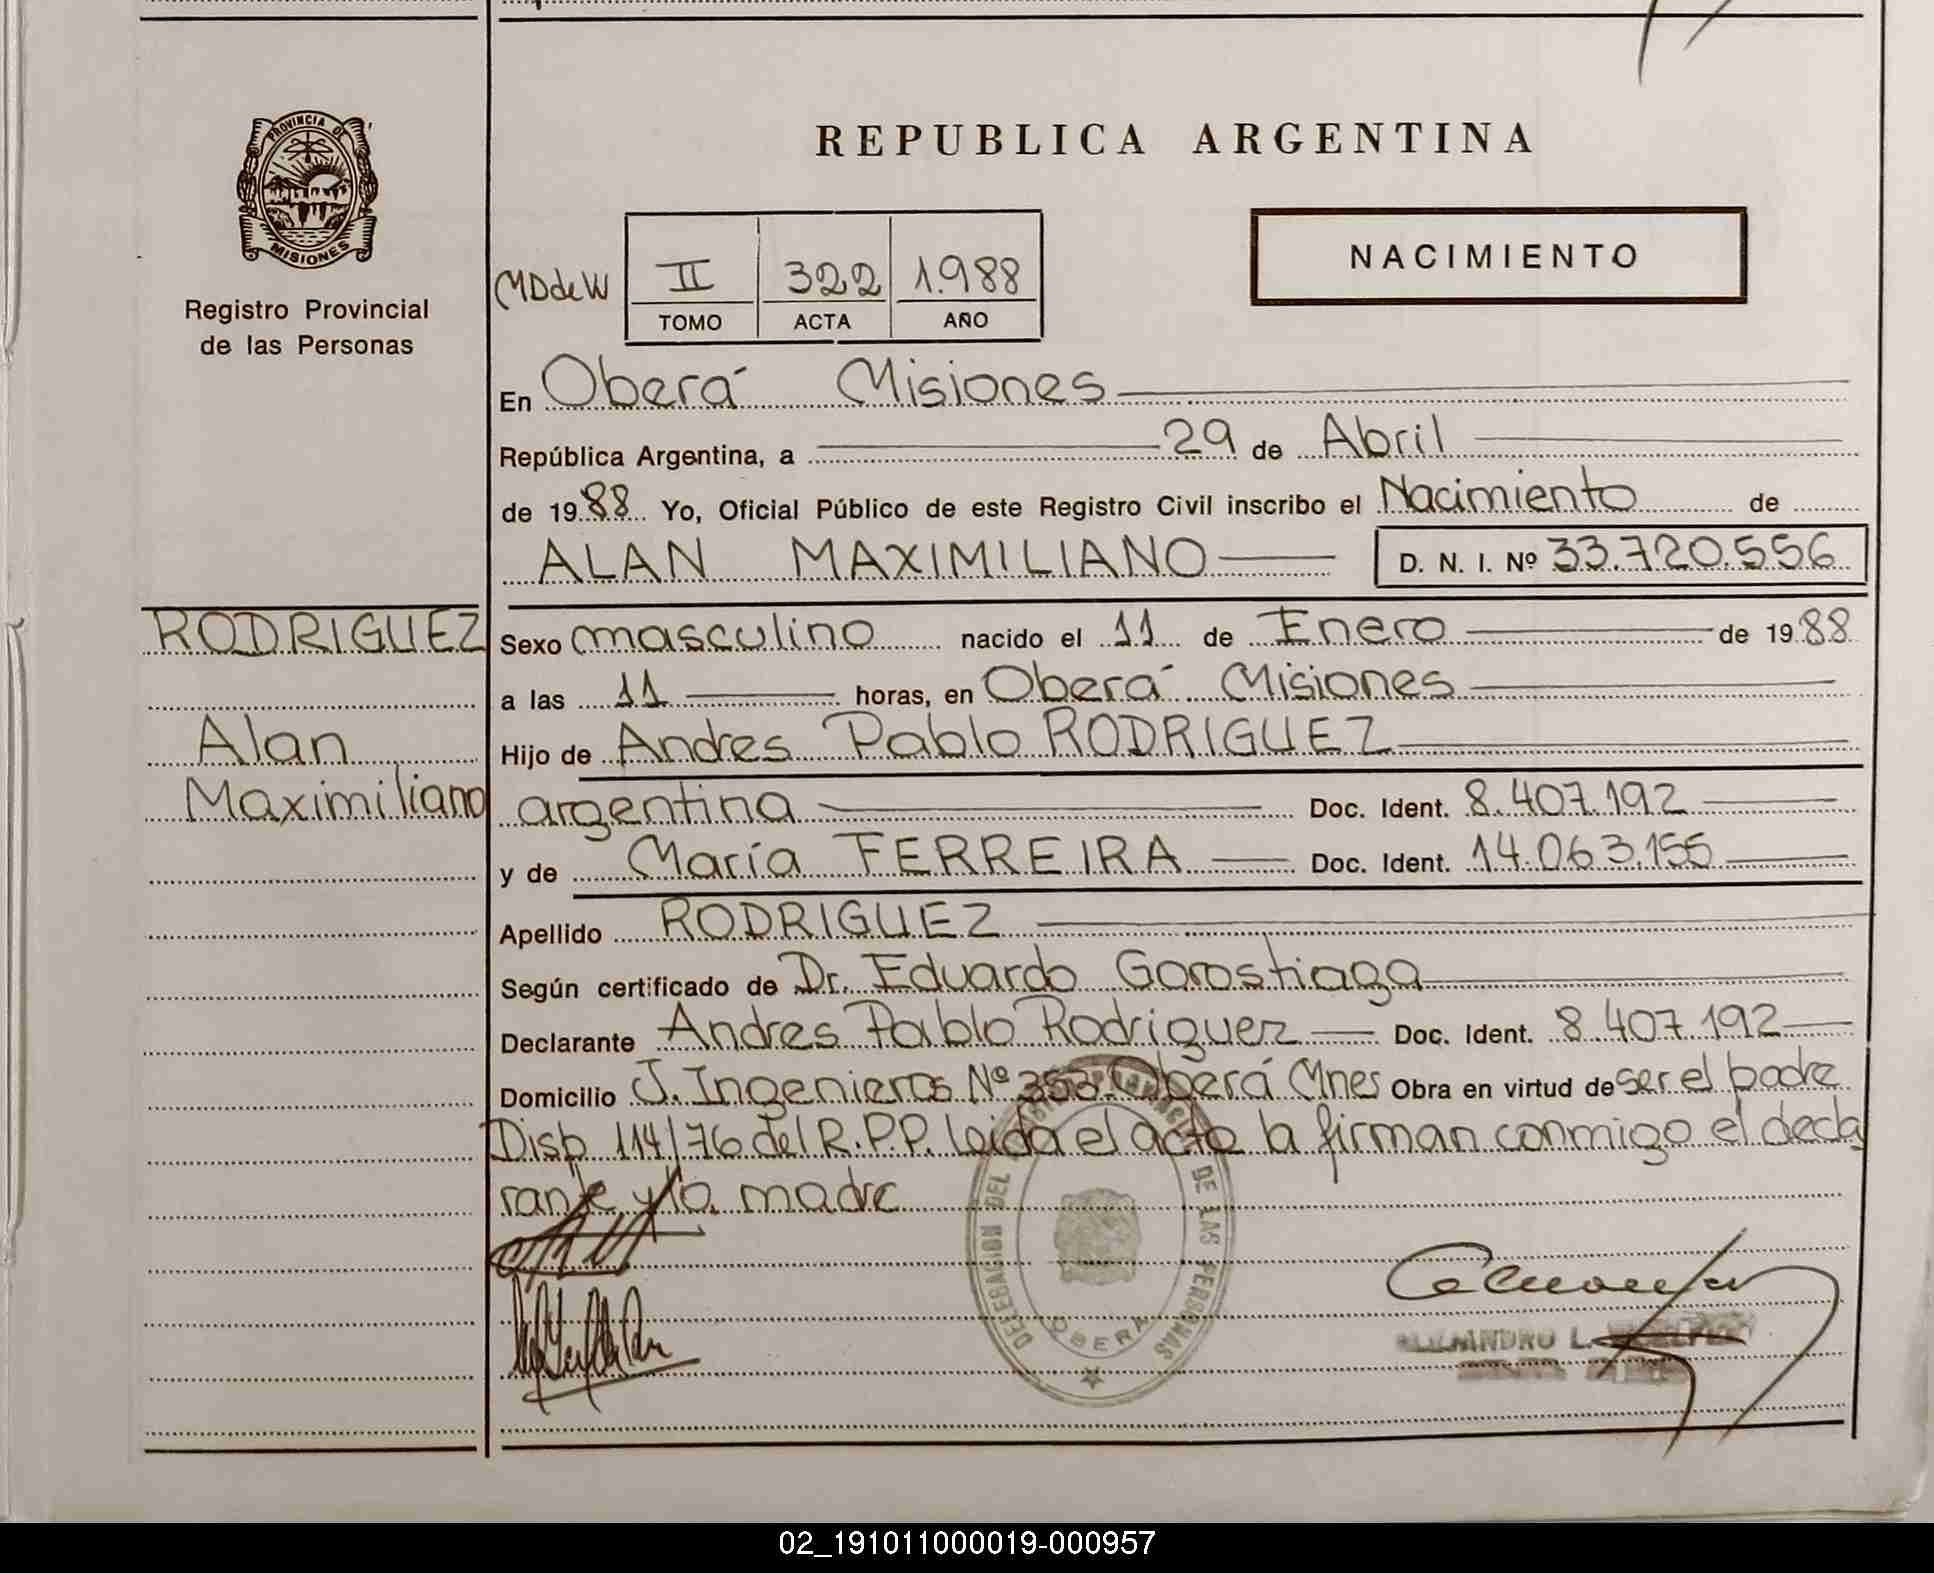 REPUBLICA ARGENTINA
PROVINCIA DE
MISIONES
Registro Provincial
de las Personas
NACIMIENTO
MDdeW II 322 1.988
TOMO ACTA AÑO
En Oberá Misiones
República Argentina, a 29 de Abril
de 1988 Yo, Oficial Público de este Registro Civil inscribo el Nacimiento de
ALAN MAXIMILIANO D. N. I. Nº 33.720.556
RODRIGUEZ
Alan
Maximiliano
Sexo masculino nacido el 11 de Enero de 1988
a las 11 horas, en Oberá Misiones
Hijo de Andres Pablo RODRIGUEZ
argentina Doc. Ident. 8.407.192
y de María FERREIRA Doc. Ident. 14.063.155
Apellido RODRIGUEZ
Según certificado de Dr. Eduardo Gorostiaga
Declarante Andres Pablo Rodriguez Doc. Ident. 8.407.192
Domicilio J. Ingenieros Nº 353 Oberá Mnes Obra en virtud de ser el padre
Disp. 114/76 del R.P.P. leida el acta la firman conmigo el decla
rante y la madre
DELEGACION DEL DE LAS PERSONAS
OBERA
02_191011000019-000957